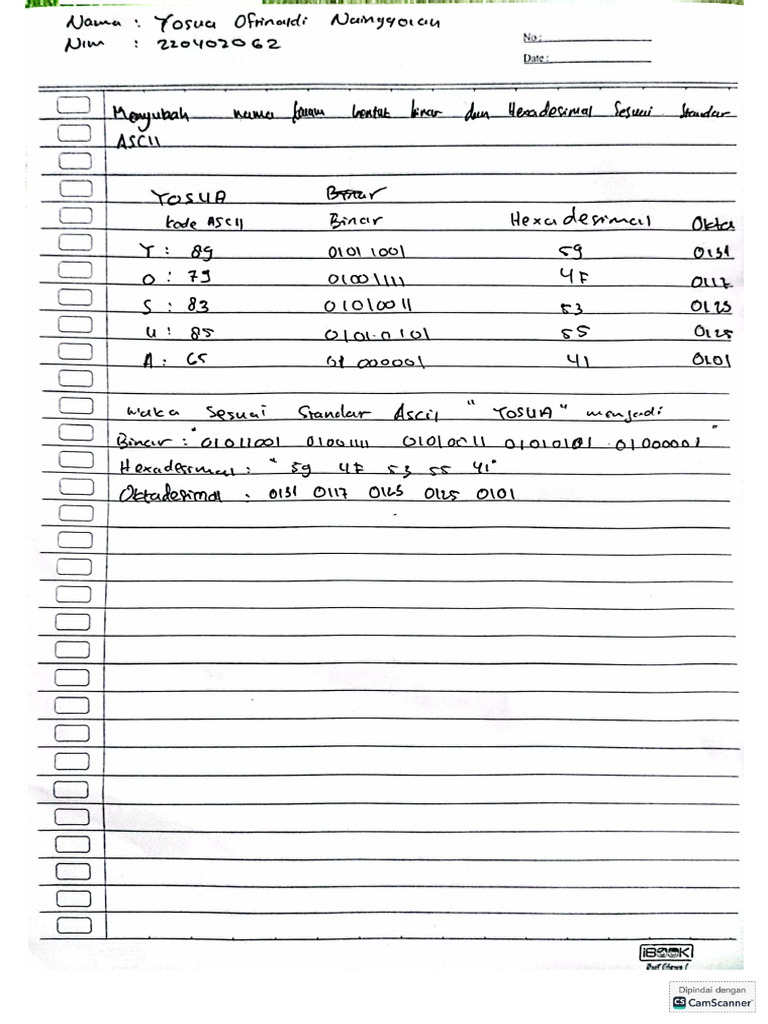 Nama : Yosua Ofrinaldi Nainggolan
Nim : 220402062
No :
Date :
Mengubah nama dalam bentuk binar dan Hexadesimal Sesuai Standar
ASCII
YOSUA Binar
Kode ASCII Binar Hexadesimal Okta
Y : 89 01011001 59 0131
O : 79 01001111 4F 0117
S : 83 01010011 53 0123
U : 85 01010101 55 0125
A : 65 01000001 41 0101
maka Sesuai Standar Ascii "YOSUA" menjadi
Binar : "01011001 01001111 01010011 01010101 01000001"
Hexadesimal : "59 4F 53 55 41"
Oktadesimal : 0131 0117 0123 0125 0101
iBOOK
Dipindai dengan
CS CamScanner